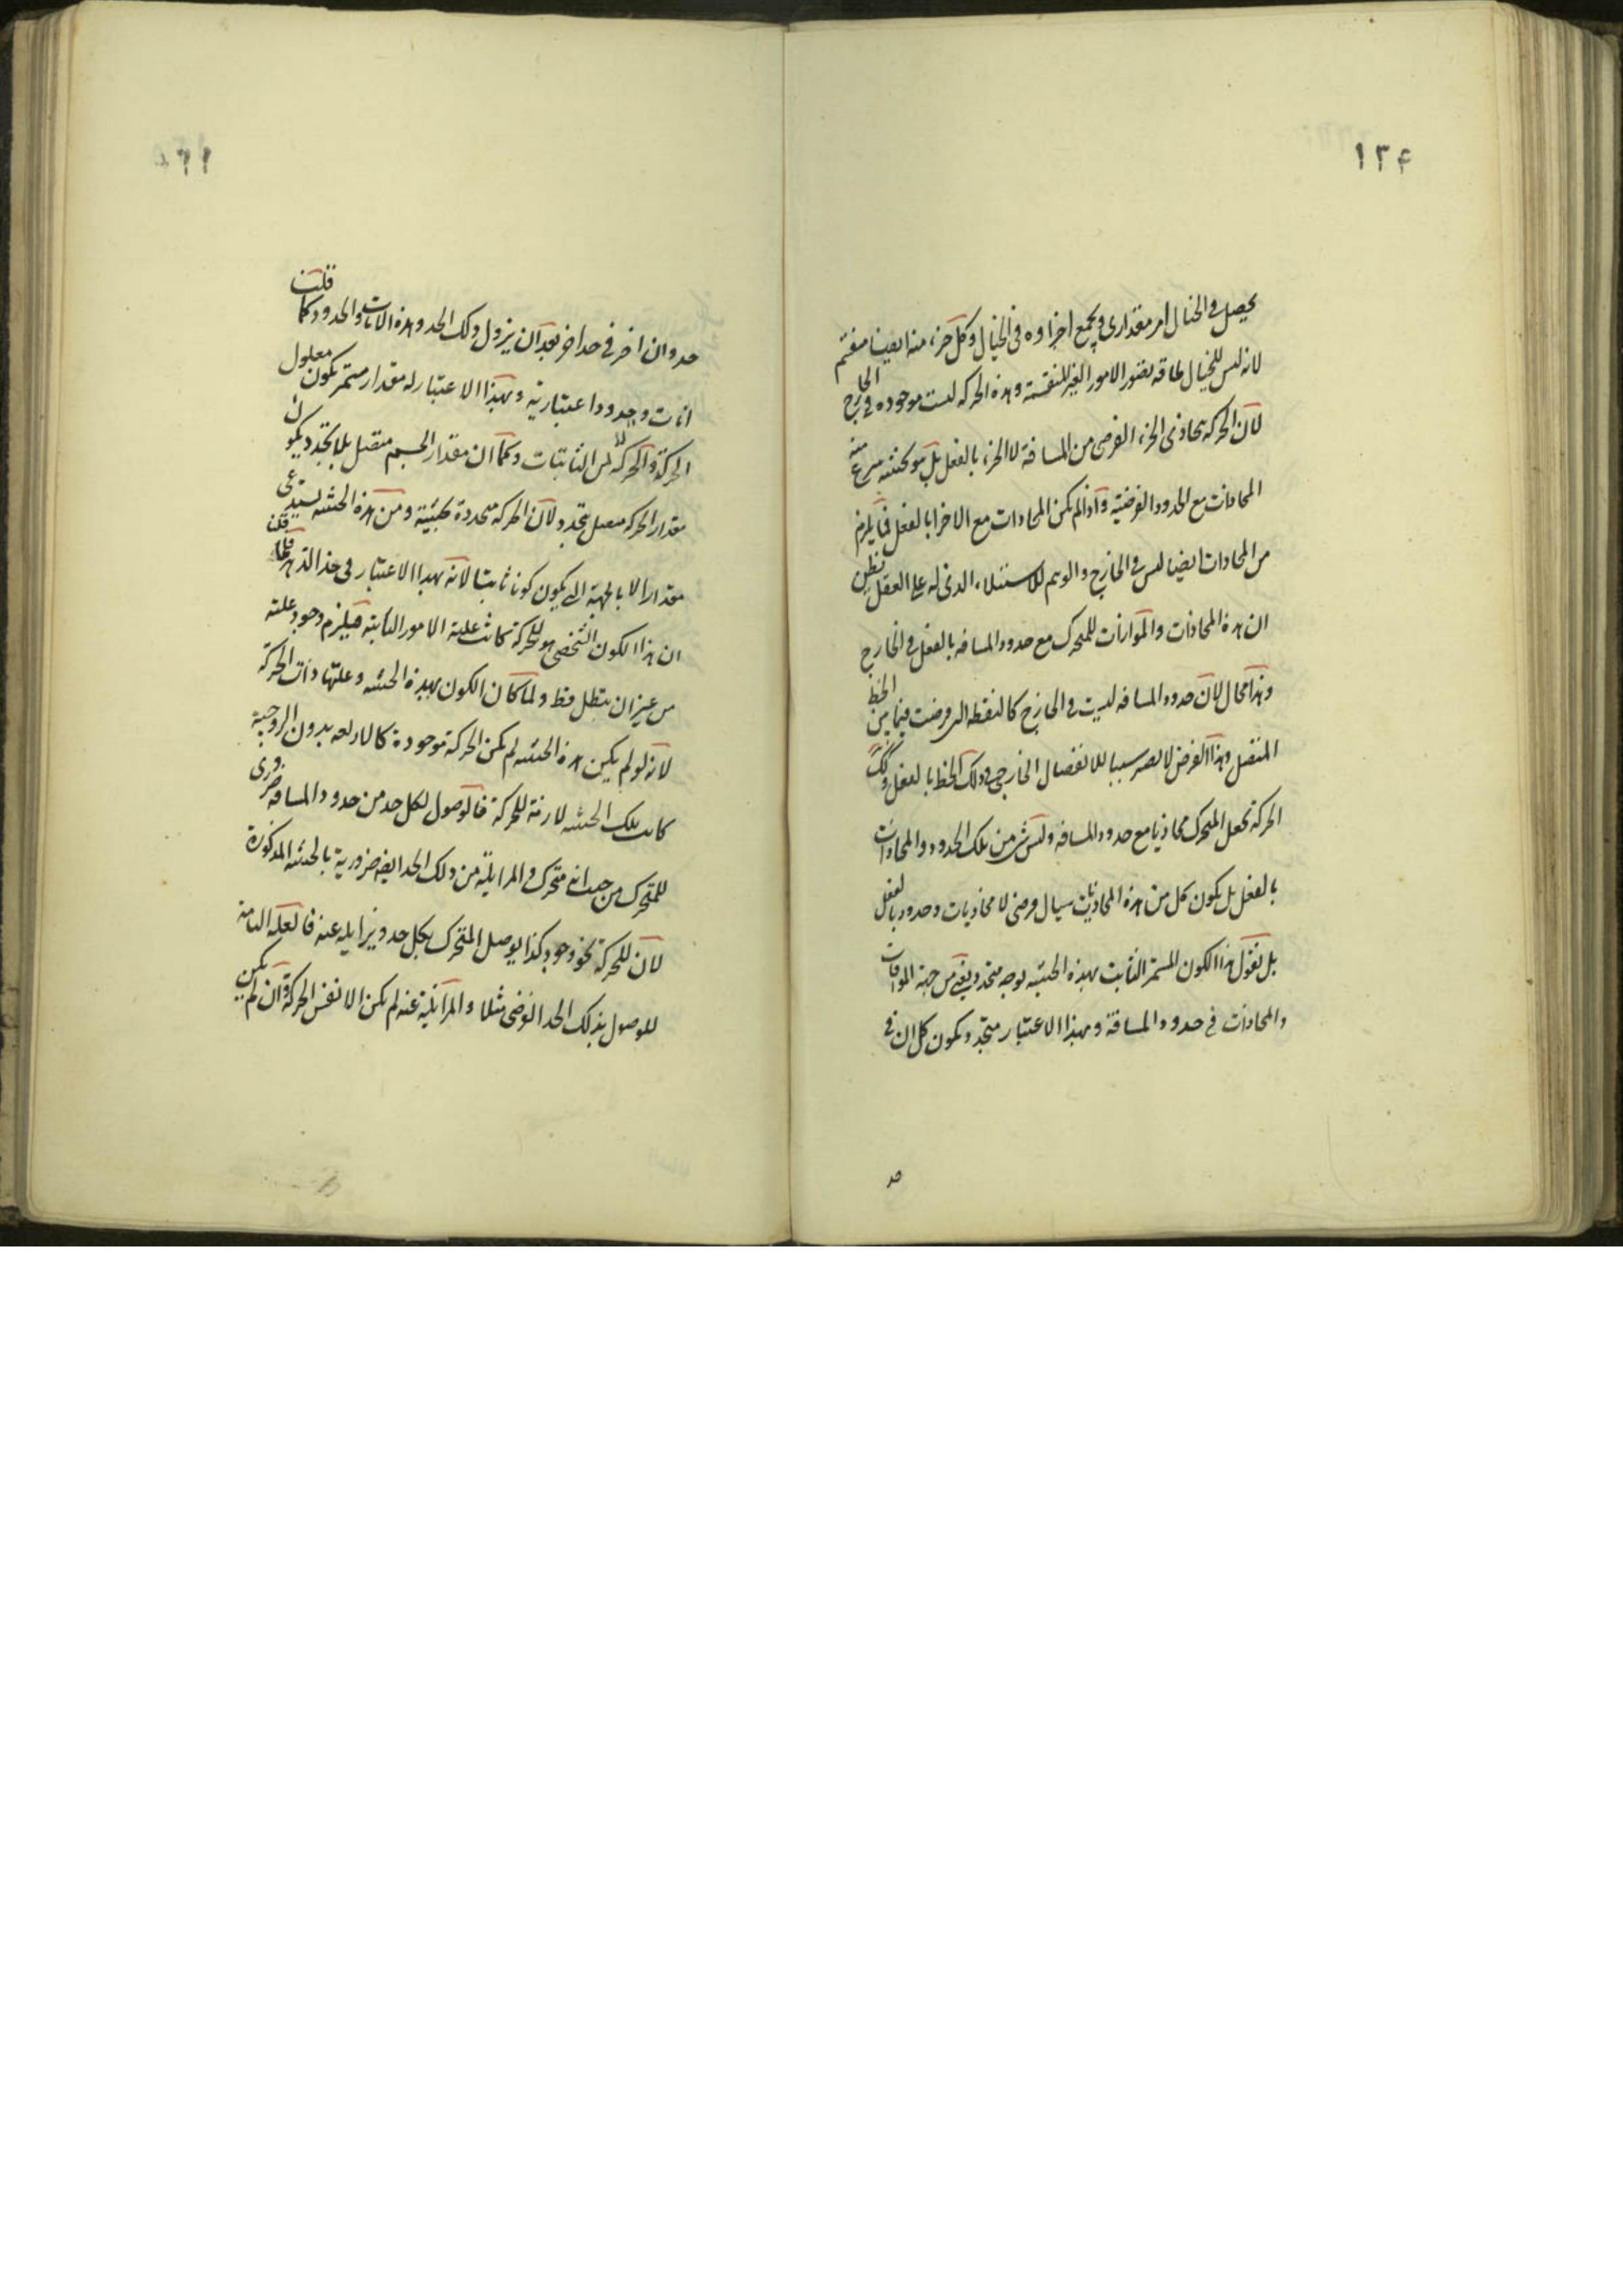 ١٢٤
يحصل في الخيال امر مقداري ويجمع اجزاوه في الخيال وكل جزء منه ايضا منقسم
لانه ليس للخيال طاقة تصور الامور الغير المنقسمة وهذه الحركه ليست موجوده في الخارج
لان الحركه يحاذى الجزء الفرضى من المسافة لا الجزء بالفعل بل هو بحيثيه
المحاذات مع الحدود الفرضيه واذا لم يكن المحاذات مع الاجزا بالفعل فما يلزم
من المحاذات ايضا ليس في الخارج والوهم للاستيلاء الذى له على العقل يظن
ان هذه المحاذات والموازات للمتحرك مع حدود المسافه بالفعل في الخارج
وهذا محال لان حدود المسافه ليست في الخارج كالنقطه التى فرضت فيما بين الخط
المتصل وهذا الفرض لا يصير سببا للانفصال الخارجى في ذلك الخط بالفعل وكك
الحركة تجعل المتحرك محاذيا مع حدود المسافه وليس شى من تلك الحدود والمحاذات
بالفعل بل يكون كل من هذه المحاذيات سيال فرضى لا محاذيات وحدود بالفعل
بل نقول هذا الكون المستمر الثابت بهذه الحيثيه بوجه متجدد يعنى من جهة الموافات
والمحاذات في حدود المسافة وبهذا الاعتبار متجدد ويكون كل ان في
حد
حد وان اخر في حد اخر بعد ان يزول ذلك الحد وهذه الانات والحدود كما قلت
انات وحدودا اعتبارية وبهذا الاعتبار له مقدار مستمر يكون معلول
الحركة والحركه ليس الثابتات وكما ان مقدار الجسم متصل بلا تجدد يكون
مقدار الحركه متصل متجدد لان الحركه متجددة بحيثية ومن هذه الحيثيه يستدعى
مقدارا لا بالجهة التى يكون كونا ثابتا لانه بهذا الاعتبار في حذا الدهر قلت
ان هذا الكون الشخصى هو للحركة كانت علية الامور الثابته فيلزم وجود علته
من غير ان يبطل قط ولما كان الكون بهذه الحيثيه وعلتها ذات الحركة
لانه لو لم يكن هذه الحيثيه لم يكن الحركة موجودة كالاربعه بدون الزوجية
كانت تلك الحيثيه لازمة للحركة فالوصول لكل حد من حدود المسافه ضرورى
للمتحرك من حيث انه متحرك والمزايلة من ذلك الحد ايضه ضرورية بالحيثيه المذكورة
لان للحركة نحو وجود كذا يوصل المتحرك بكل حد ويزايله عنه فالعله التامة
للوصول بذلك الحد الفرضى مثلا والمزايلة عنه لم يكن الا نفس الحركة وان لم يكن